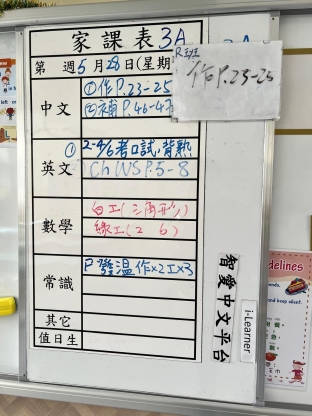 家課表 3A
第 週 5 月 28 日(星期
中文
①作P.23-25
②補P.46-47
R班
作P.23-25
英文
① 2-4/6考口試,背熟
Ch WS P.5-8
數學
白工(三角形)
綠工(2 6)
常識
P發溫作x2工x3
其它
值日生
智愛中文平台
i-Learner
delines